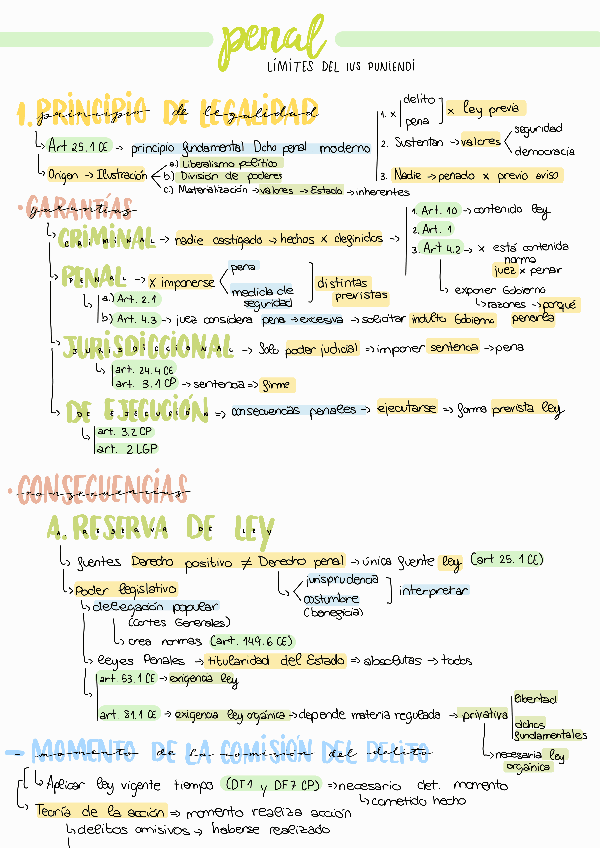 penal
LÍMITES DEL IUS PUNIENDI
1. PRINCIPIO DE LEGALIDAD
↳ Art 25.1 CE → principio fundamental Dcho penal moderno
↳ Origen → Ilustración
a.) Liberalismo político
b) División de poderes
c.) Materialización → valores → Estado → inherentes
1. x delito pena x ley previa
2. Sustentan → valores seguridad democracia
3. Nadie → penado x previo aviso
· GARANTÍAS
↳ CRIMINAL → nadie castigado → hechos x definidos →
1. Art. 10 → contenido ley
2. Art. 1
3. Art 4.2 → x está contenida norma
juez x penar
↳ exponer Gobierno
↳ razones → porqué penarla
↳ PENAL → x imponerse
pena
medida de seguridad
distintas previstas
↳ a.) Art. 2.1
b) Art. 4.3 → juez considera pena → excesiva → solicitar indulto Gobierno
↳ JURISDICCIONAL → Solo poder judicial → imponer sentencia → pena
↳ art. 24.4 CE
art. 3.1 CP → sentencia => firme
↳ DE EJECUCIÓN => consecuencias penales → ejecutarse => forma prevista ley
↳ art. 3.2 CP
art. 2 LGP
· CONSECUENCIAS
A. RESERVA DE LEY
↳ fuentes Derecho positivo ≠ Derecho penal → única fuente ley (art 25.1 CE)
↳ jurisprudencia
costumbre
(beneficia)
interpretar
↳ Poder legislativo
↳ delegación popular
(Cortes Generales)
↳ crea normas (art. 149.6 CE)
↳ leyes Penales → titularidad del Estado => absolutas → todos
↳ art. 53.1 CE → exigencia ley
art. 81.1 CE → exigencia ley orgánica → depende materia regulada → privativa
libertad
dchos fundamentales
↳ necesaria ley orgánica
- MOMENTO DE LA COMISIÓN DEL DELITO
↳ Aplicar ley vigente tiempo (DT1 y DF7 CP) => necesario det. momento
↳ cometido hecho
↳ Teoría de la acción => momento realiza acción
↳ delitos omisivos → haberse realizado